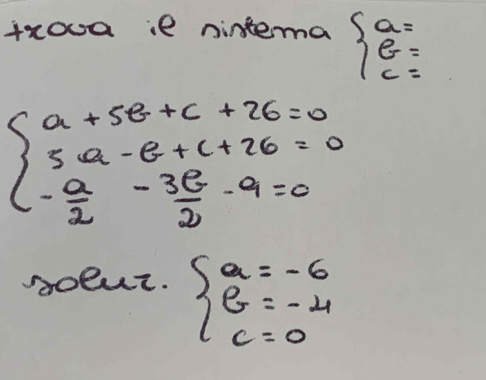 trova il sistema { a =
b =
c =
{ a + 5b + c + 26 = 0
5a - b + c + 26 = 0
- a/2 - 3b/2 - 9 = 0
soluz. { a = - 6
b = - 4
c = 0